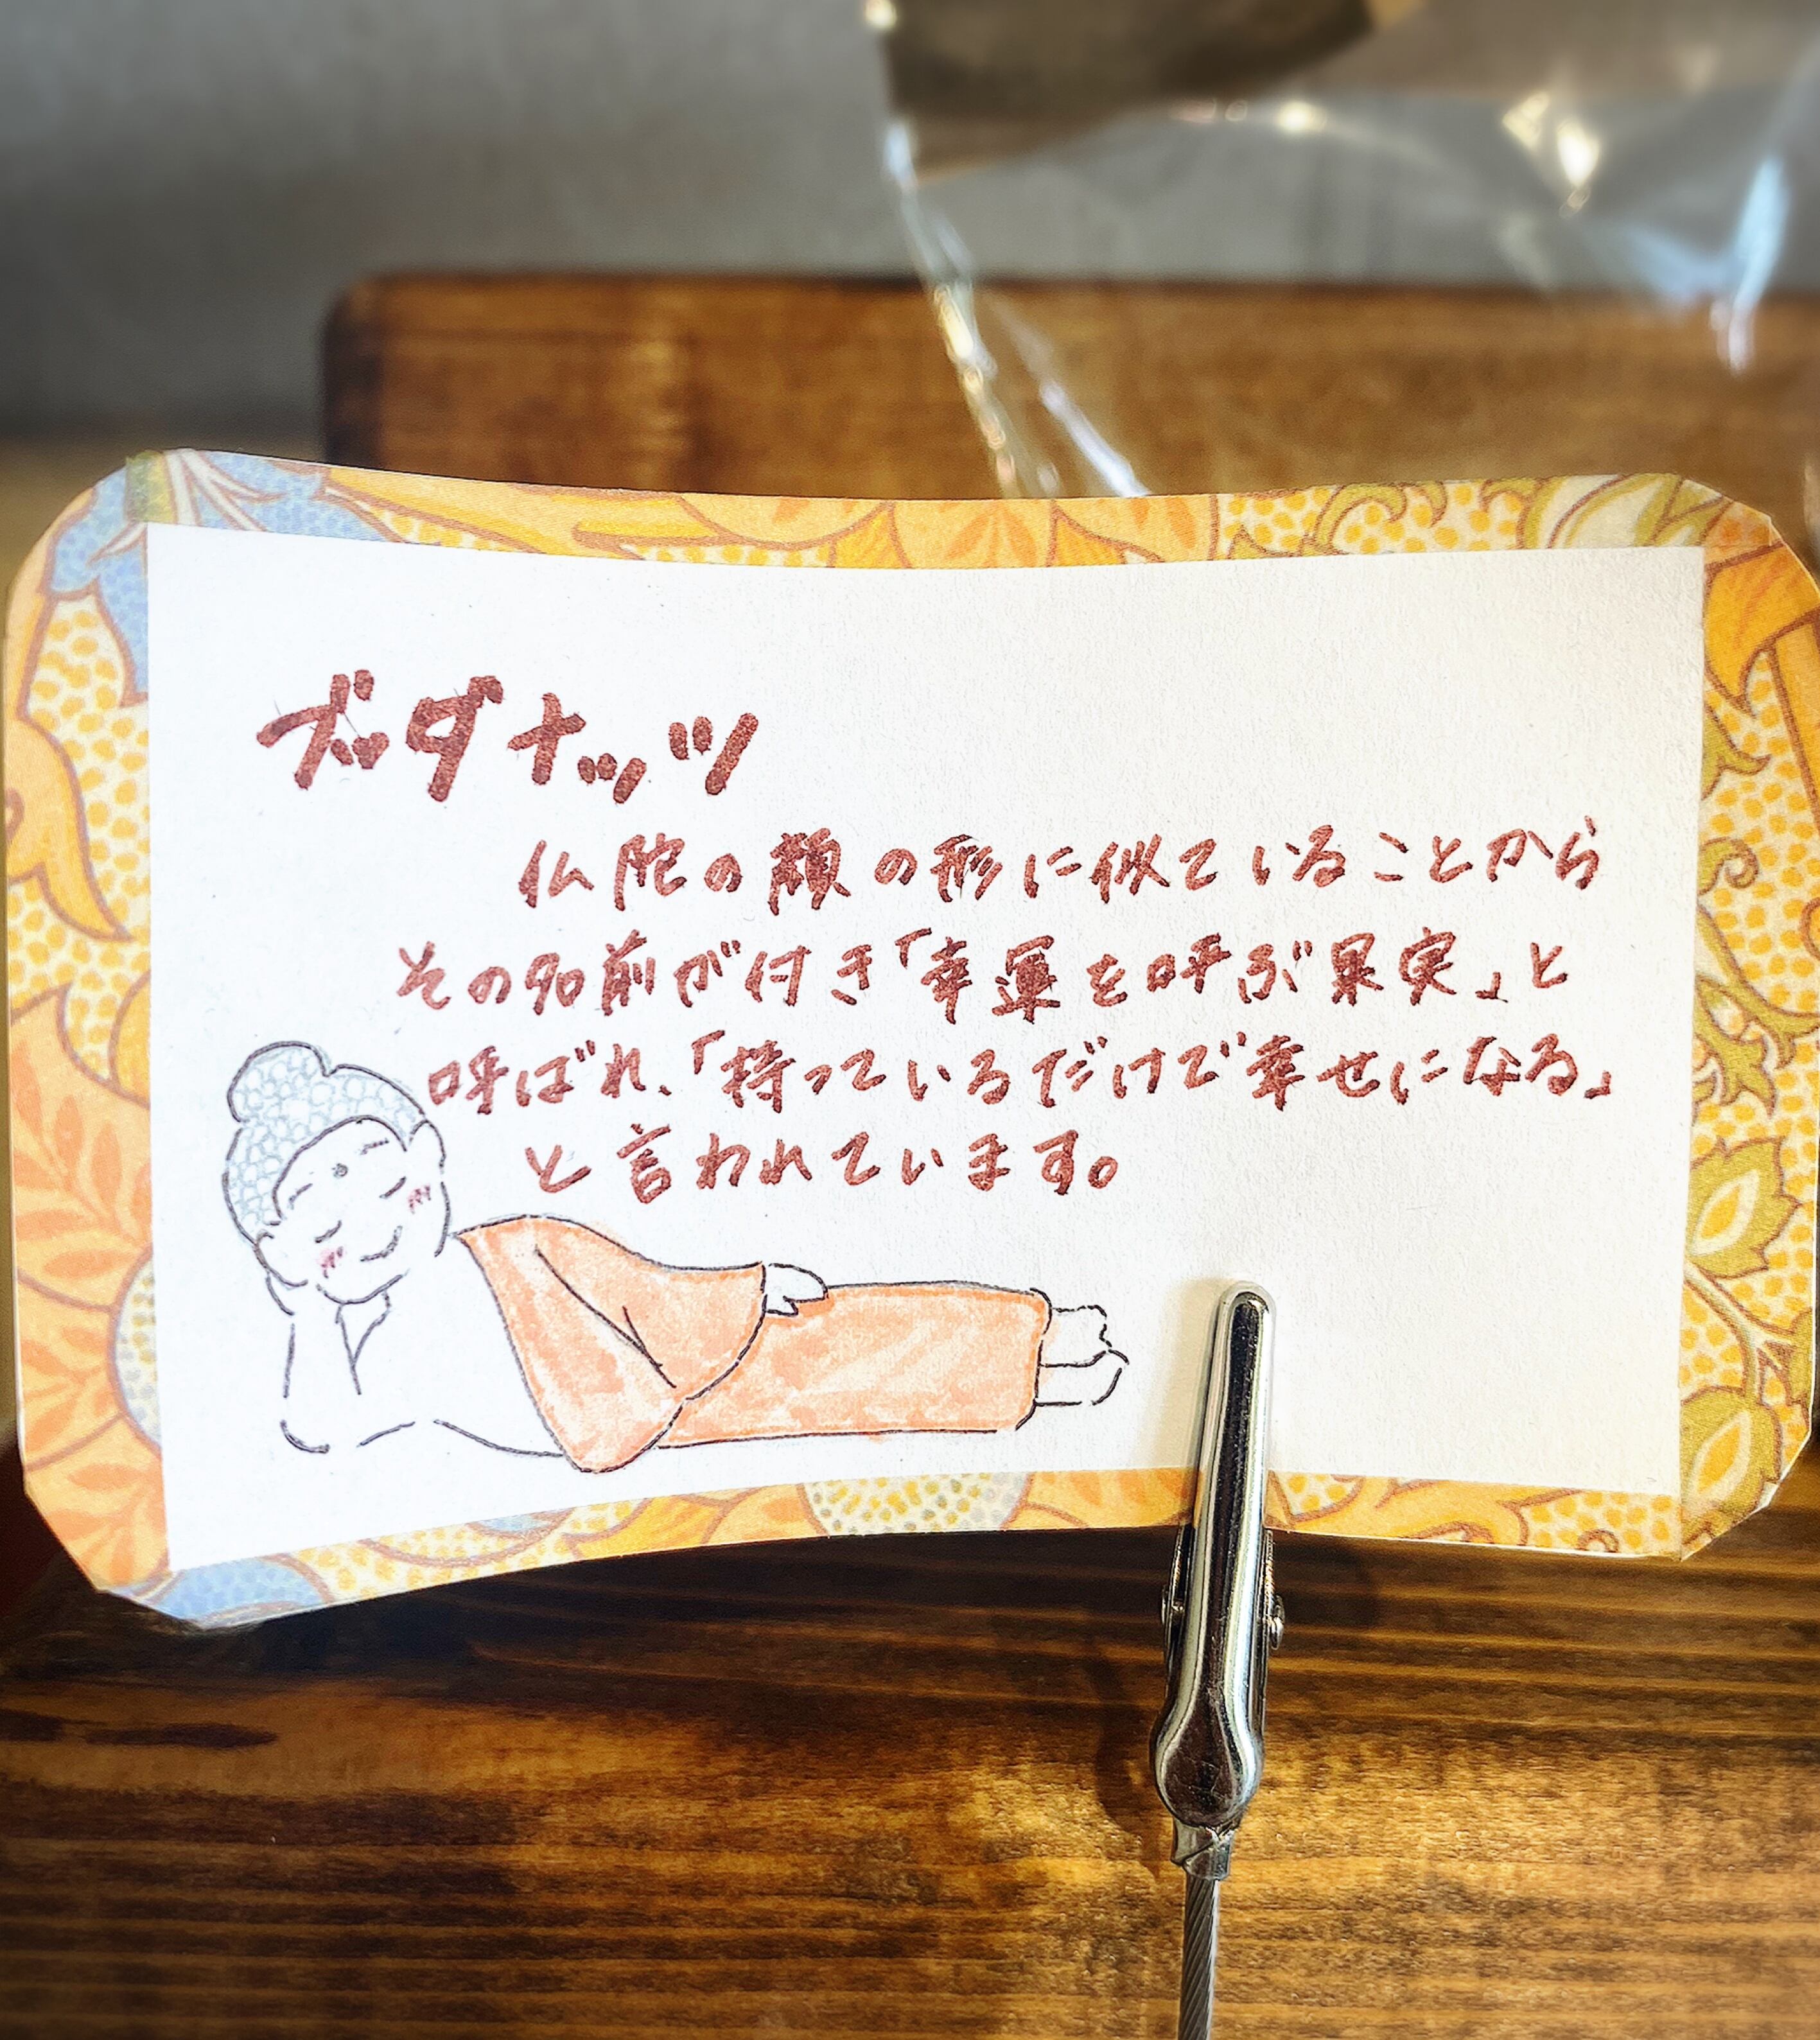 ブッダナッツ
仏陀の顔の形に似ていることから
その名前が付き「幸運を呼ぶ果実」と
呼ばれ、「持っているだけで幸せになる」
と言われています。